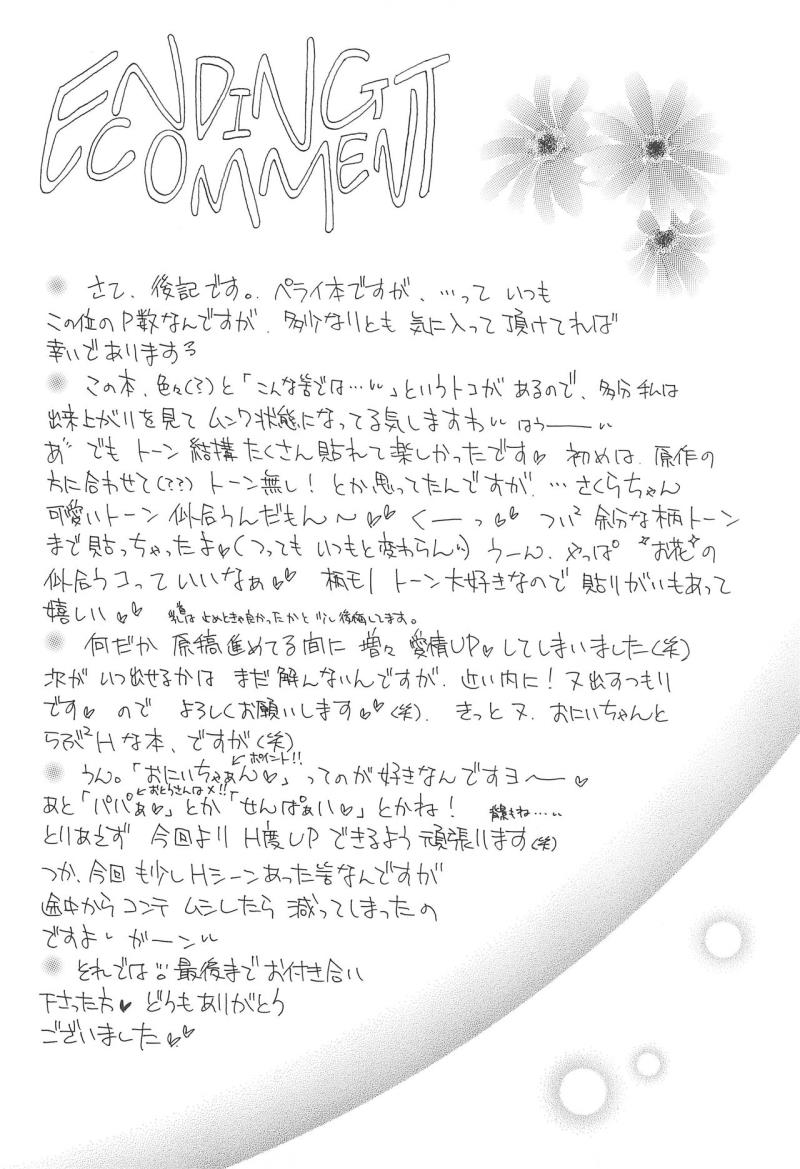 ENDING
COMMENT
さて、後記です。ペライ本ですが、…って いつも
この位のP数なんですが、多少なりとも 気に入って頂けてれば
幸いでありまする
この本、色々(?)と「こんな筈では…」というトコがあるので、多分私は
出来上がりを見て ムンク状態になってる気しますわ はうーー
あ゛でも トーン結構たくさん貼れて楽しかったです♥ 初めは、原作の
方に合わせて(??)トーン無し! とか思ってたんですが、…さくらちゃん
可愛いトーン 似合うんだもん〜♥♥ くーっ♥♥ つい² 余分な柄トーン
まで貼っちゃったよ♥(つっても いつもと変わらん) うーん、やっぱ お花の
似合うコっていいなぁ♥♥ 柄モノトーン大好きなので 貼りがいもあって
嬉しい♥♥ はよめときゃ良かったかと 少し後悔してます。
何だか 原稿進めてる間に 増々 愛情UP♥してしまいました(笑)
次が いつ出せるかは まだ解んないんですが、近い内に! 又出すつもり
です♥ ので よろしくお願いします♥♥(笑)、きっと又、おにいちゃんと
らぶ²Hな本、ですが(笑)
ポイント!!
うん。「おにいちゃぁん♥」ってのが好きなんですヨー♥
おとうさんは×!!
あと「パパぁ♥」とか「せんぱぁい♥」とかね! もね…
とりあえず 今回より H度UPできるよう 頑張ります(笑)
つか、今回 も少しHシーンあった筈なんですが
途中から コンテ ムシしたら 減ってしまったの
ですよ がーン
それでは 最後まで お付き合い
下さった方♥ どうもありがとう
ございました♥♥